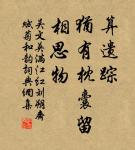 算遗踪
犹有枕囊留
相思物
吴文英满江红刘朔斋
赋菊和韵词典网集